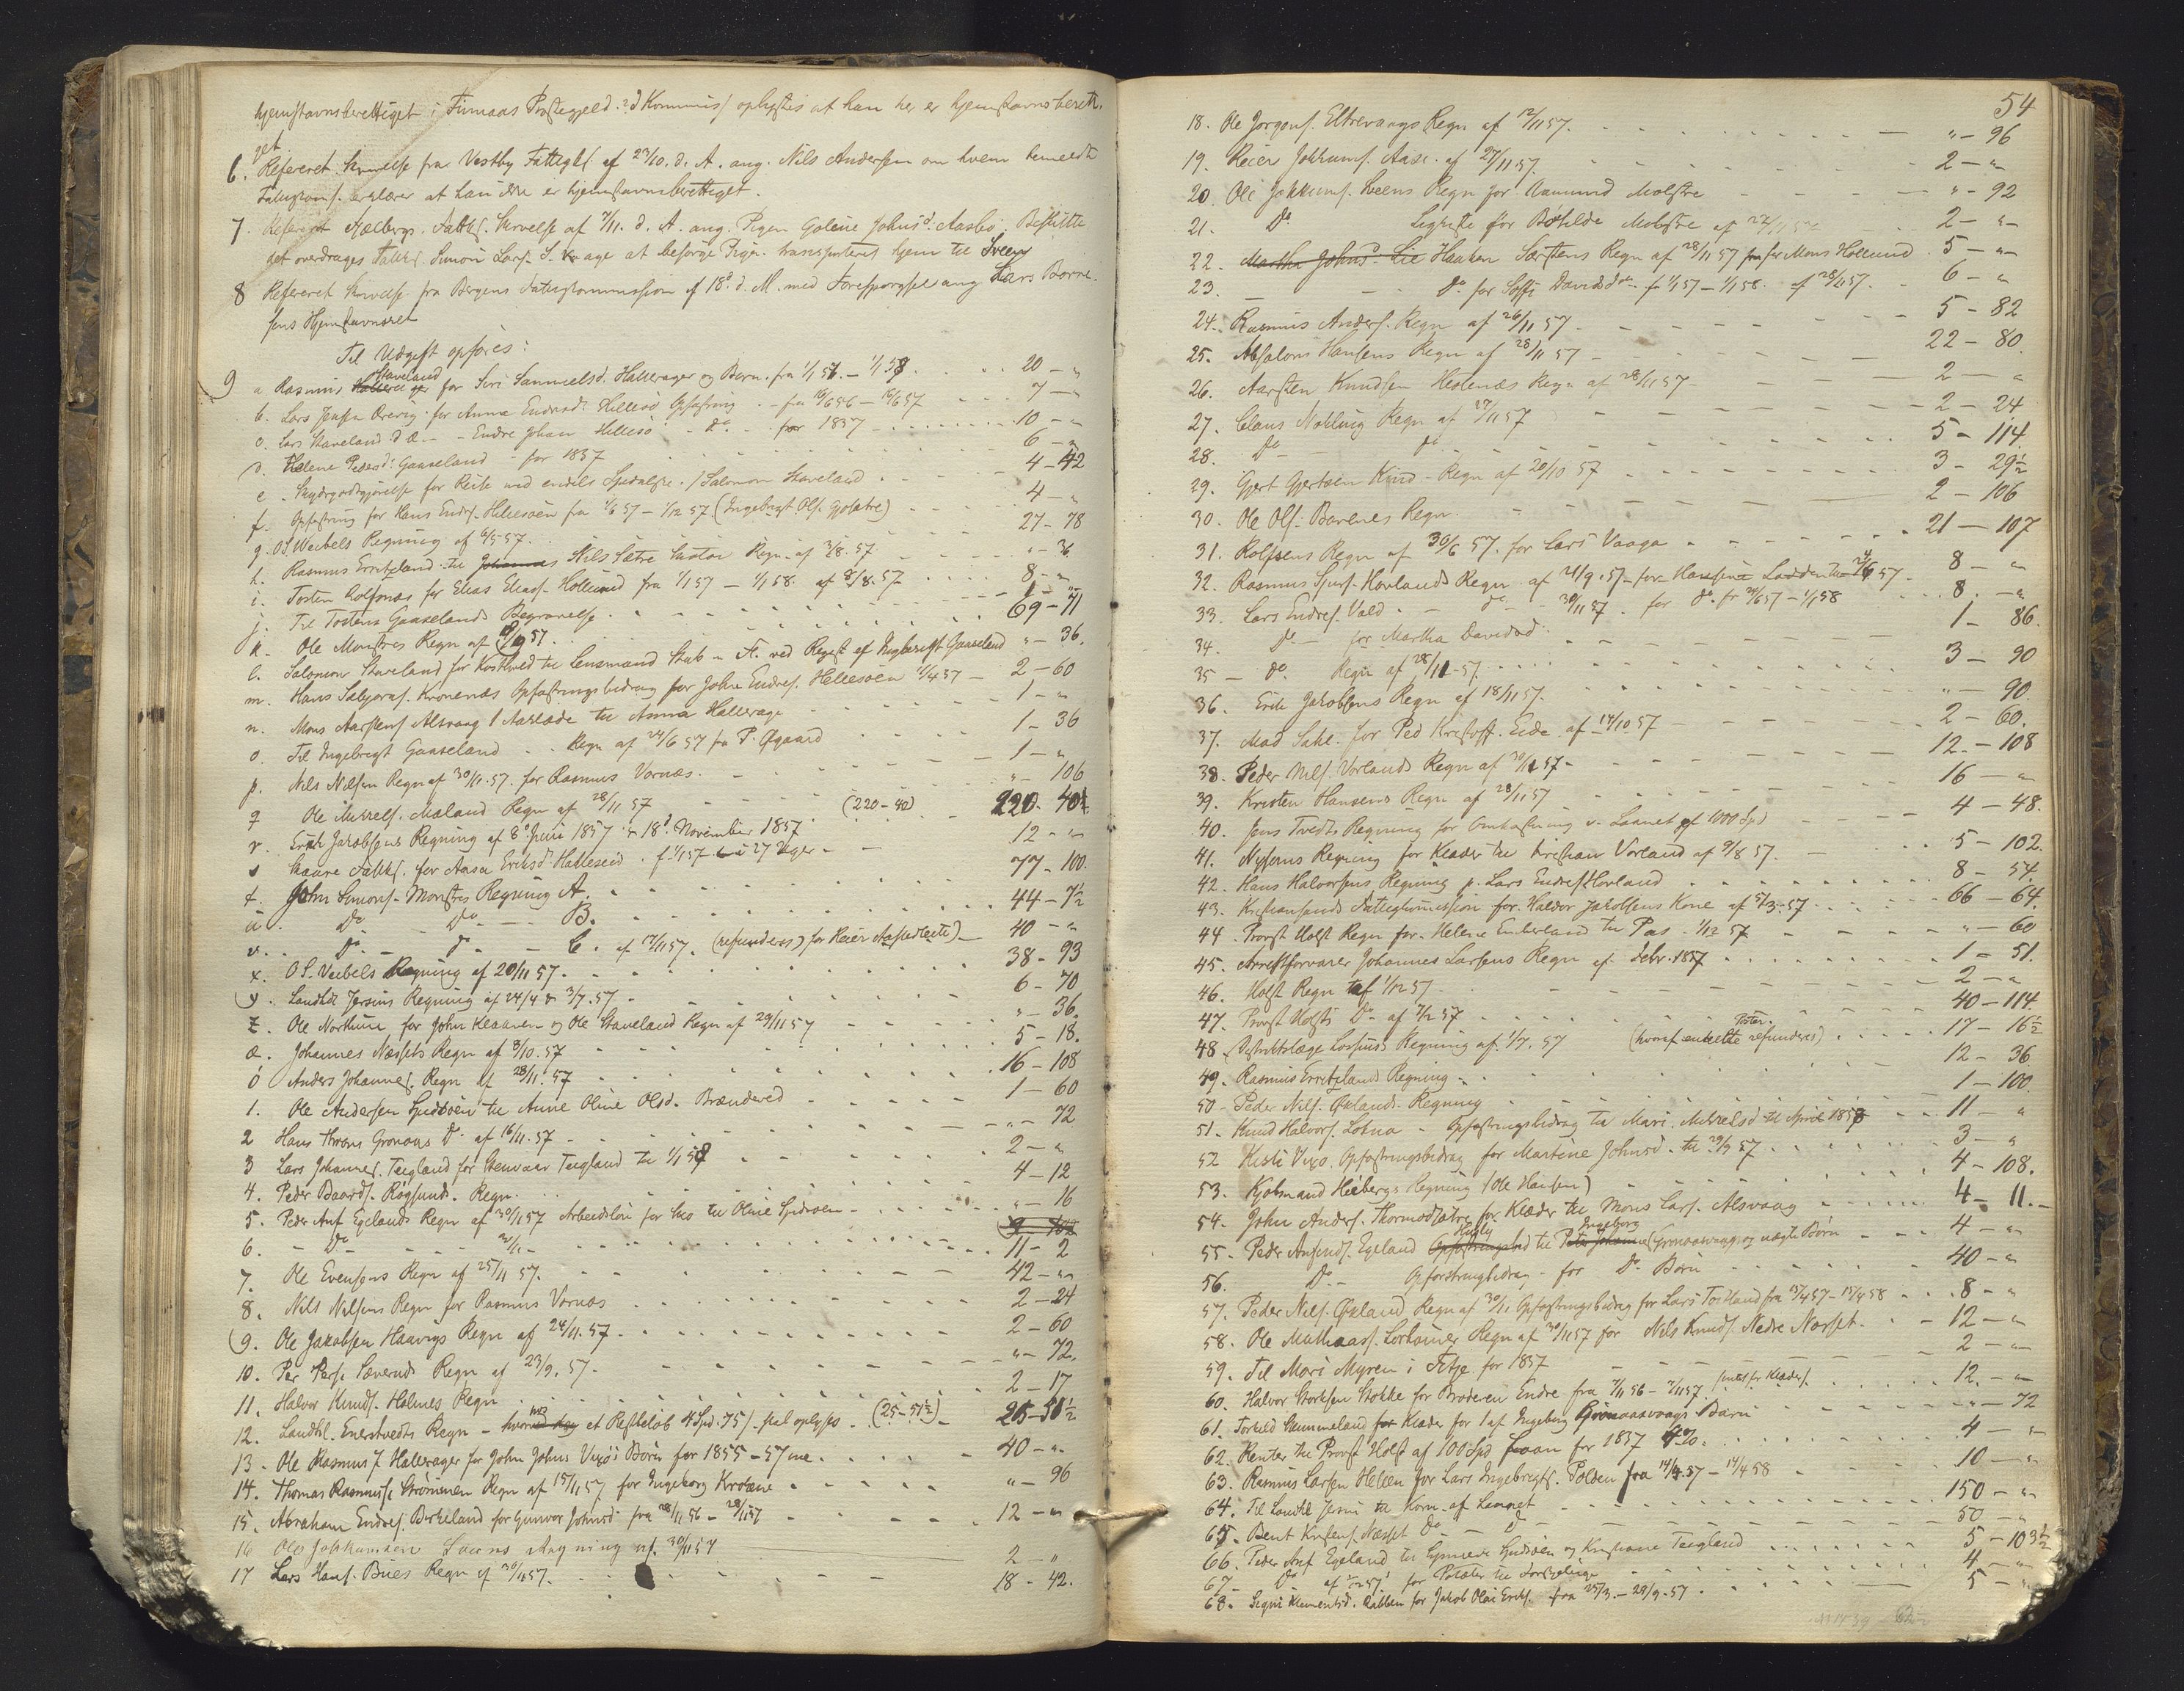 hjemstavnsberettiget i Finnaas Præstegjeld. d Kommis/ oplystes at han her er hjemstavnsberett.
get
6. Refereret Skrivelse fra Vestby Fattigk/ af 23/10. d. A. ang. Nils Andersen om hvem bemeldte
erklærer at han ikke er hjemstavnsberettiget.
7. Refereret Fattk/. Skrivelse af 7/11. d. A. ang. Pigen Goline Johnsd. Aasbø. Besluttet
det overdrages Fattk/. Simon Lars. at besørge Pigen transporteret hjem til Sveen
8 Refereret Skrivelse fra Bergens Fattigkommission af 18d. d. M. med Forespørgsel ang Lars Borre-
sens Hjemstavnsret
Til Udgift opføres:
9 a Rasmus Staveland for Siri Samuelsd. Hallerager og Barn. fra 1/1 57. – 1/1 58. 20 – "
b. Lars for Anna Endresd. Hillesø Opfostring – fra 16/6 56 – 16/6 57 7 – "
c. Lars Staveland d Æ. – Endre Johan Hillesø – do. – for 1857 10 – "
d. Helene Pedersd. Gaaseland – for 1857 6 – "
e. Skydsgodtgjørelse for Reise med endels Spedalske. / Salomon Staveland 4 – 42
f. Opfostring for Hans Endres. Hillesøen fra 1/6 57 – 1/12 57. (Ingebrigt Ols. Gjøsætre) 4 – "
g. O. S. Weibels Regning af 6/5 57. 27 – 78
h. Rasmus Erritzland til Nils Sætre Regn. af 3/8. 57 " – 36
i. Tosten Rolfsnæs for Elias Elias. Hollund fra 1/1 57 – 1/1 58. af 8/8. 57 8 – "
j. Til Tostens Gaaselands Begravelse 1 – "
k. Ole Monstres Regn af 57. 69 – 71
l. Salomon Staveland for Kosthold til Lensmand ved Regist. af Ingebrigt Gaaseland " – 36.
m. Hans Kronenæs Opfostringsbidrag for John Endres. Hillesøen 1/4 57 – 2 – 60
n. Mons Aarskens Alsvaag 1 til Anna Hallerage 1 – "
o. Til Ingebrigt Gaaseland Regn af 24/6 57 fra P. Øgaard 1 – 36
p. Nils Nilsen Regn af 30/11. 57. for Rasmus Vornæs. 1 – "
q Ole Mikkels. Mæland Regn af 28/11 57 " – 106
r. Erich Jakobsens Regning af 8d. Juni 1857 & 18d. November 1857 (220 – 40) 220. 40½
s Skaare Fattk/. for Aasa Eriksd. Halleseid. f. 1/1 57 – 27 Uger 12 – "
t. John Simons. Monstres Regning A. 77 – 100.
u. Do Do – B. 44 – 7½
v. Do – do – C. af 17/11 57. (refunderes) for Reier 40 – "
x. O. S. Veibels Regning af 20/11 57. 38 – 93
y. Landhdl Jersins Regning af 24/4 & 3/7. 57 6 – 70
z. Ole Northun for John Klaaven – og Ole Staveland Regn af 29/11 57 " – 36.
æ. Johannes Næssets Regn af 3/10. 57 5 – 18.
ø Anders Johannes. Regn af 28/11. 57 16 – 108
1. Ole Andersen Spidsøen til Anne Oline Olsd. Brændeved 1 – 60
2 Hans Grønaas Do. af 16/11. 57 " – 72
3 Lars Johannes. Teigland for Steinvaar Teigland til 1/1 58 2 – "
4. Peder Baards. Røgsund. Regn. 4 – 12
5. Peder Anf. Egelands Regn af 30/11 57 Arbeidsløn for Sko til Oline Spidsøen " – 16
6. – Do – 30/11 – 11 – 2
7. Ole Evensens Regn af 25/11 57. 42 – "
8. Nils Nilsens Regn for Rasmus Vornæs 2 – 24
9. Ole Jakobsen Haavigs Regn af 24/11. 57. 2 – 60
10. Per Pers. Sævereids Regn af 23/9. 57. " – 72.
11. Halvor Knuds. Holmes Regn 2 – 17
12. Landhl. Enerstvedts Regn – et Restbeløb 4 Spd. 75/ skal oplyses. (25 – 51½) 25 – 51½
13. Ole Rasmus. Hallerager for John Johns Vixøs Børn for 1855 – 57 40 – "
14. Thomas Rasmuss. Strømmen Regn af 15/11 57 for Ingeborg " – 96
15. Abraham Endres. Birkeland for Gunvor Johnsd fra 28/11 56 – 28/11 57 12 – "
16 Ole Jokkumsen Sveens Regning af. 30/11 57 2 – "
17 Lars Hans. Bues Regn af 30/11 57. 18 – 42.
54
18. Ole Jørgens. Eltrevaags Regn af 12/11 57. " – 96
19. Reier Jokkums. Aase. af 27/11 57. 2 – "
20. Ole Jokkums. Sveens Regn for Aamund Molstre " – 92
21. Do Ligkiste for Bothilde Molstre af 22/11 57 2 – "
22. Haaken Særstens Regn af 28/11 57 for Mons Hollund 5 – "
23. – – Do for Soffi Davidsd. f. 1/1 57 – 1/1 58. af 28/11 57. 6 – "
24. Rasmus Anders. Regn af 26/11 57 5 – 82
25. Absalon Hansens Regn af 28/11 57 22 – 80.
26. Aarsten Knudsen Hestenæs Regn af 28/11 57 2 – "
27. Claus Nohling Regn af 27/11 57 2 – 24
28. Do – do 5 – 114.
29. Gjert Gjertsen Kind – Regn af 20/10 57 3 – 29½
30. Ole Ols. Børenes Regn. 2 – 106
31. Rolfsens Regn af 30/6 57. for Lars Vaaga 21 – 107
32. Rasmus Sjurs. Hovlands Regn af 21/9. 57 – for 24/6 57 8 – "
33. Lars Endres. Vold – do 30/11 57. for do. fr 24/6 57 – 1/1 58 8. – "
34. Do – for Martha Davidsd. 1 – 86.
35 – do. Regn af 28/11 57. 3 – 90
36. Erik Jakobsens Regn af 18/11 57. " – 90.
37. Mad Sahl. for Ped Kristoff. Eide. af 14/10 57 2 – 60.
38. Peder Nils. Vorlands Regn af 30/11 57 12. – 108
39. Kristen Hansens Regn af 28/11 57 16 – "
40. Jens Tvedts Regning for Omkostning v. Laanet af 1000 Spd 4 – 48.
41. Regning for Klæder til Kristian Vorland af 9/8 57. 5 – 102.
42. Hans Halvorsens Regning p. Lars Endres. Hovland 8 – 54.
43. Kristiansands Fattigkommission for Haldor Jakobsens Kone af 5/3 57 66 – 64.
44. Provst Holst Regn for Helene Emberland til Pas. 1/12 57 " – 60
45. Arrestforvarer Johannes Larsens Regn af Febr. 1857 1 – 51.
46. Holst Regn af 1/12 57 2 – "
47. Provst Holsts Do – af 7/12 57 40 – 114
48. Distriktslæge Regning af 1/7. 57 (hvoraf enkelte Poster refunderes) 17 – 16½
49. Rasmus Erritzlands Regning. 12 – 36
50 Peder Nils. Øklands Regning 1 – 100.
51. Knud Halvors. Løkna – Opfostringsbidrag til Mari Mikkelsd. til April 1858 11 – "
52 Kisti Vixø. Opfostringsbidrag for Martine Johnsd. til 29/9 57 3 – "
53. Kjøbmand Heibergs Regning (Ole Hansen) 4 – 108.
54. John Anders. Thormodsætre for Klæder til Mons Lars. Alsvaag 4 – 11.
55. Peder Anfinds. Egeland Huslej til Ingeborg Grønaasvaag og uægte Børn 4 – "
56. Do – Opfostringbidrag – for Do. Børn 40 – "
57. Peder Nils. Økland Regn af 30/11 Opfostringsbidrag for Lars fra 13/4 57 – 13/4 58 8 – "
58. Ole Mathiass. Regn af 30/11 57 for Nils Knuds. Nedre Næsset. 12 – "
59. Til Mari Myren i Fitje for 1857 2 – "
60. Halvor Storksen Stokke for Broderen Endre fra 7/11 56 – 7/11 57. 12 – "
61. Torkild Hummeland Klæder for 1 af Ingeborg Grønaasvaags Børn " – 72
62. Renter til Provst Holst af 100 Spd Laan for 1857 4%. 4 – "
63. Rasmus Larsen Helleen for Lars Ingebrigts. Polden fra 14/4 57 – 14/4 58 10 – "
64. Til Landhdl Jersin til Korn af Laanet 150 – "
65. Bent Knytens. Næsset Do – Do 50 – "
66. Peder Anf Egeland til Spidsøen og Kristiane Teigland 5 – 103½
67 – Do af 57 for Poteter til 4 – "
68. Signi Klementsd. Rabben for Jakob Olai Eriks. fra 25/3. – 29/9 57. 5 – "